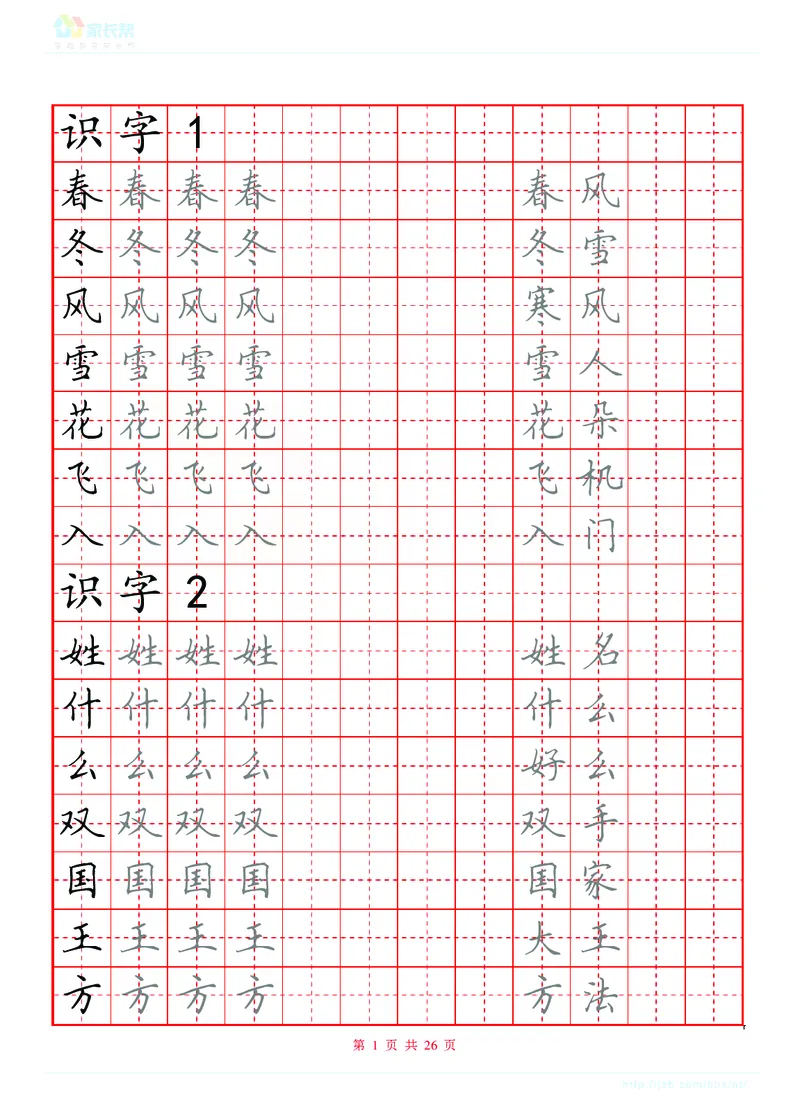 家长帮
识字1
春春春春 春风
冬冬冬冬 冬雪
风风风风 寒风
雪雪雪雪 雪人
花花花花 花朵
飞飞飞飞 飞机
入入入入 入门
识字2
姓姓姓姓 姓名
什什什什 什么
么么么么 好么
双双双双 双手
国国国国 国家
王王王王 大王
方方方方 方法
第 1 页 共 26 页